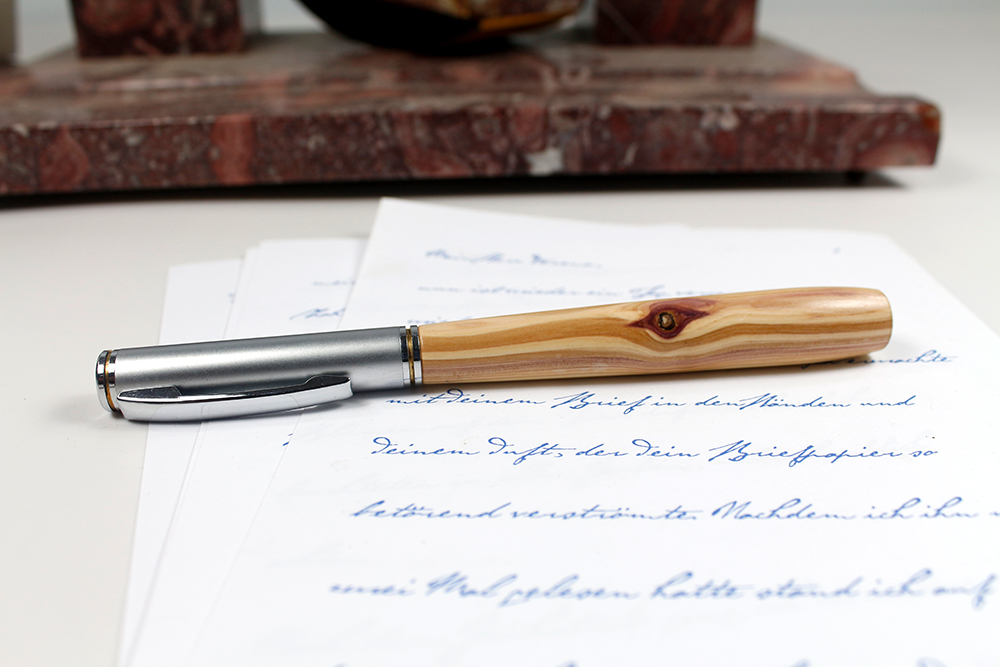 nun ist wieder ein
machte
mit deinem Brief in den Händen und
deinem Duft, der dein Briefpapier so
betörend verströmte. Nachdem ich ihn
zwei Mal gelesen hatte stand ich auf